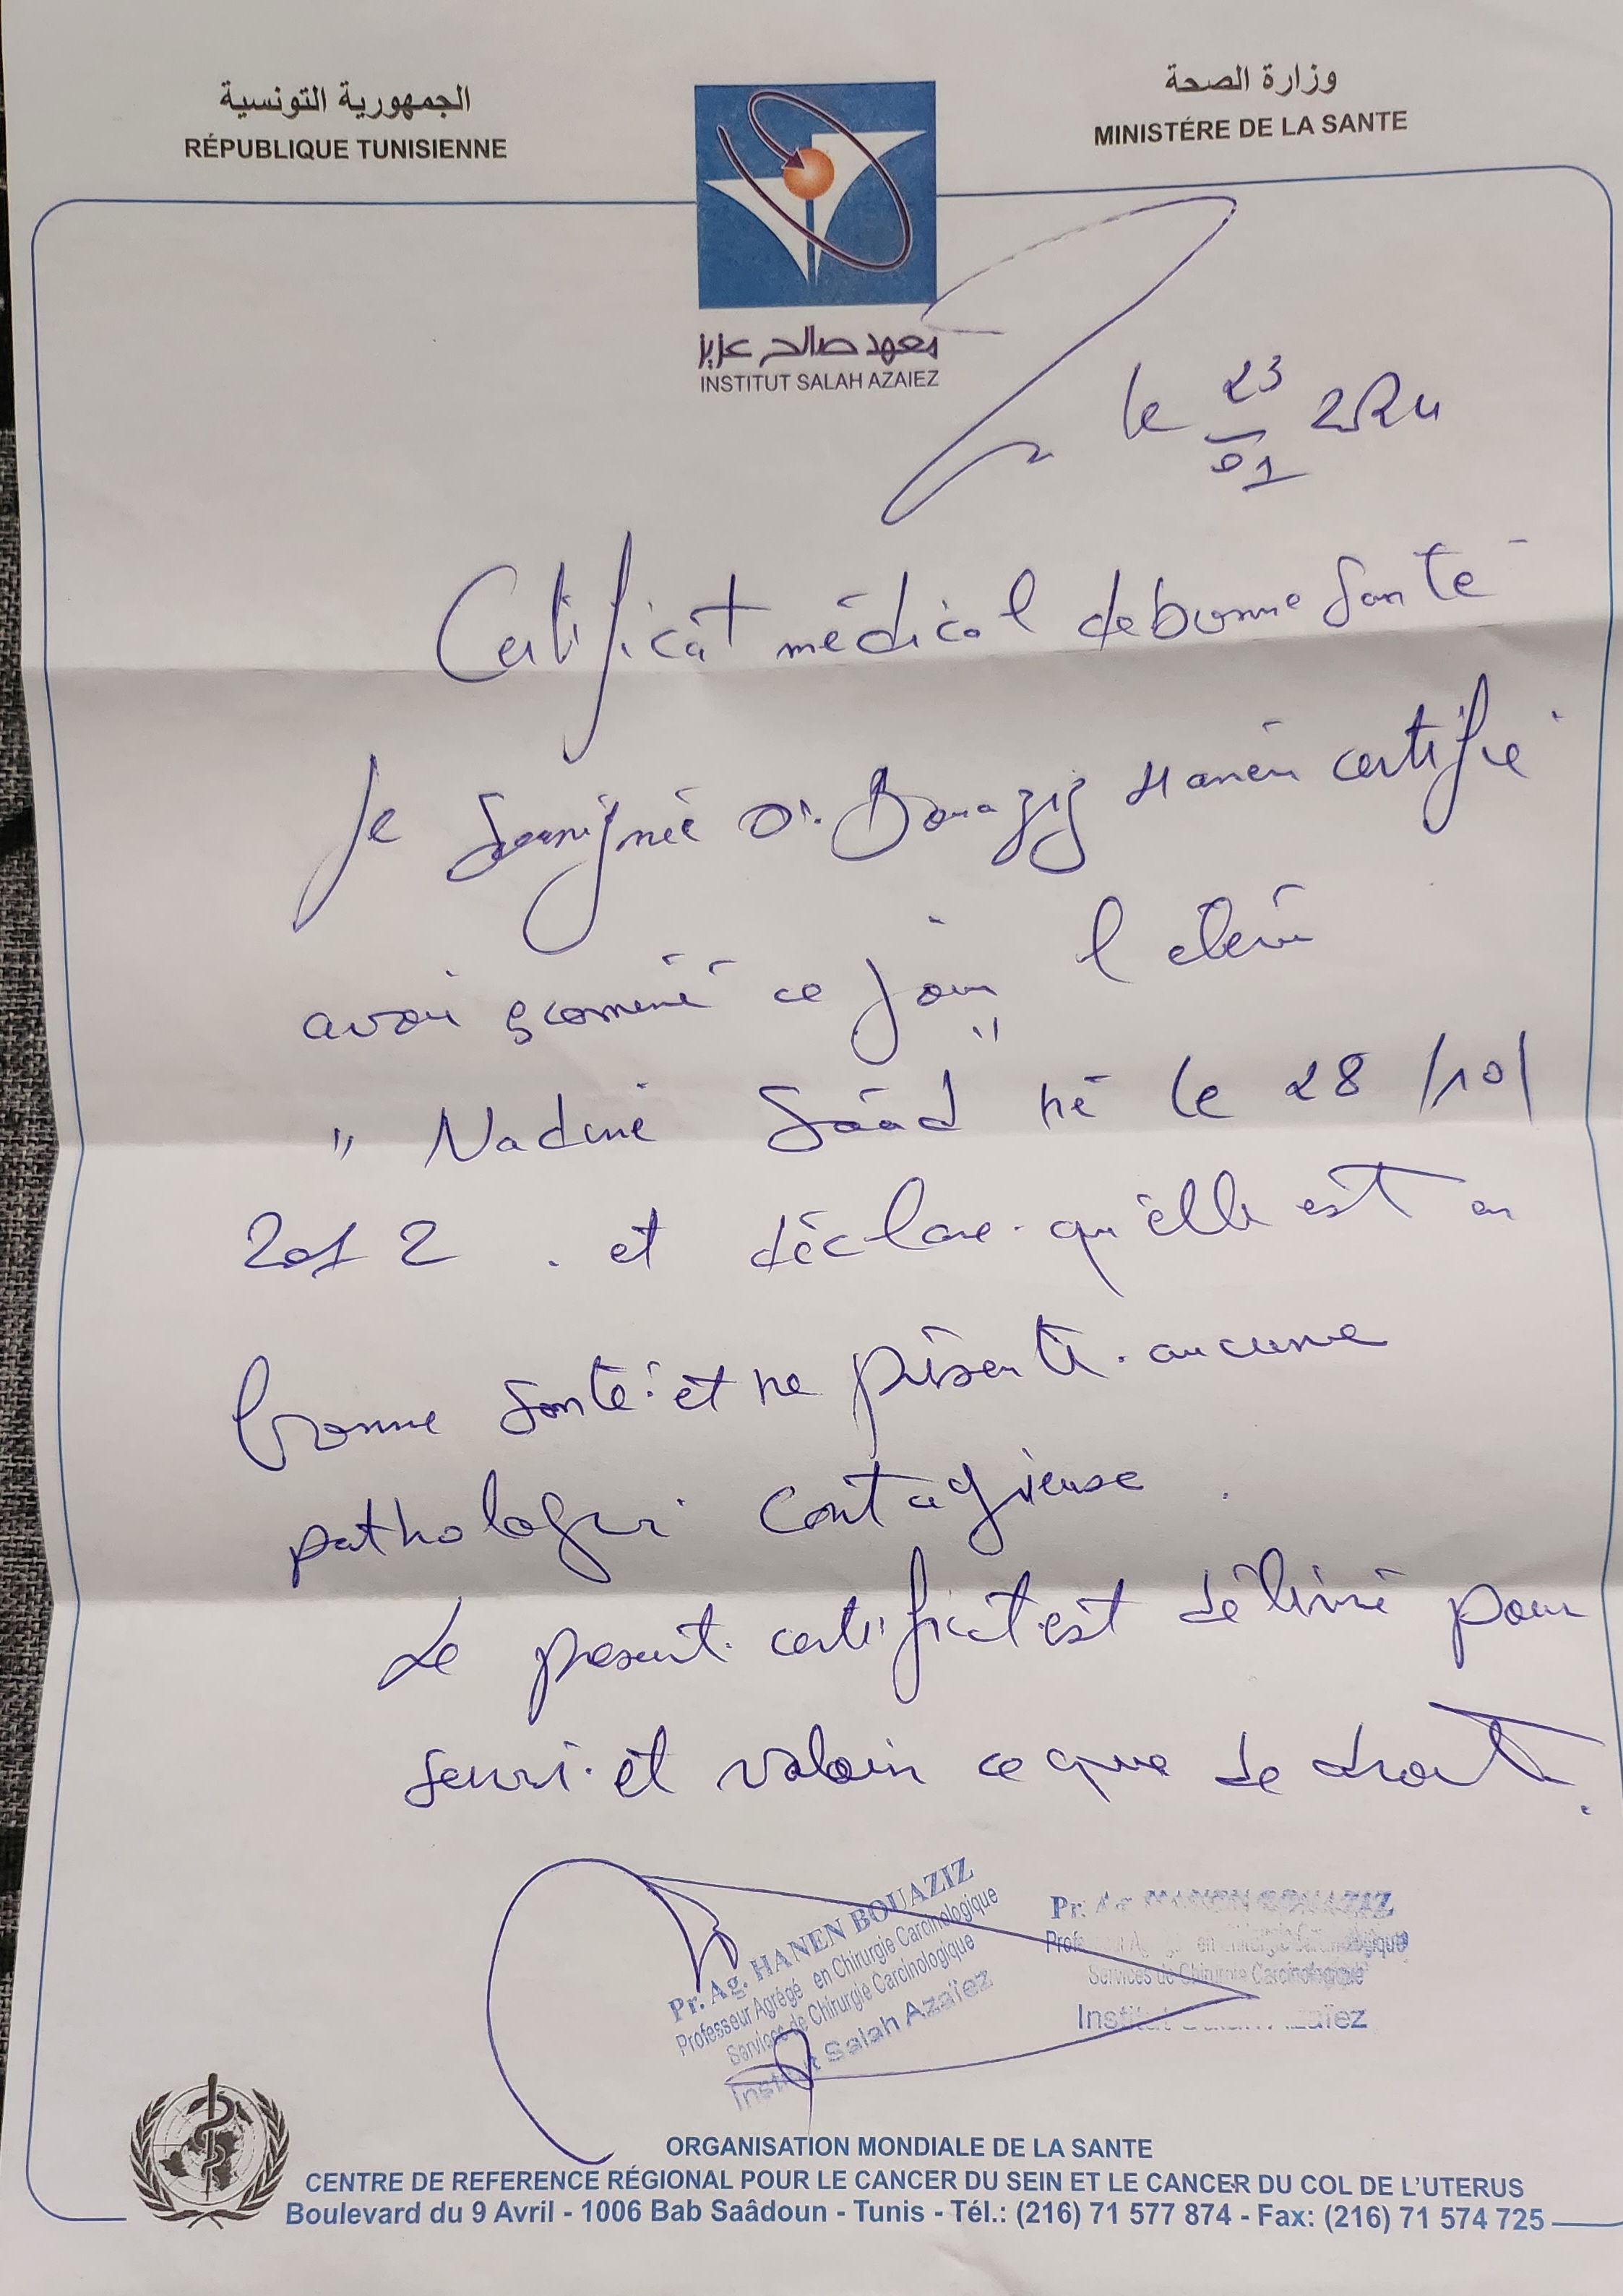 الجمهورية التونسية
RÉPUBLIQUE TUNISIENNE
وزارة الصحة
MINISTÉRE DE LA SANTE
معهد صالح عزيز
INSTITUT SALAH AZAIEZ
le 23/01 2024
Certificat médical de bonne santé
Je soussignée Dr. Bouaziz Hanen certifie
avoir examiné ce jour l'élève
"Nadine Saâd" né le 28/10/
2012. et déclare qu'elle est en
bonne santé et ne présente aucune
pathologie contagieuse.
Le présent certificat est délivré pour
servir et valoir ce que de droit.
Pr. Ag. HANEN BOUAZIZ
Professeur Agrégé en Chirurgie Carcinologique
Services de Chirurgie Carcinologique
Institut Salah Azaïez
Pr. Ag. HANEN BOUAZIZ
Professeur Agrégé en Chirurgie Carcinologique
Services de Chirurgie Carcinologique
Institut Salah Azaïez
ORGANISATION MONDIALE DE LA SANTE
CENTRE DE REFERENCE RÉGIONAL POUR LE CANCER DU SEIN ET LE CANCER DU COL DE L'UTERUS
Boulevard du 9 Avril - 1006 Bab Saâdoun - Tunis - Tél.: (216) 71 577 874 - Fax: (216) 71 574 725